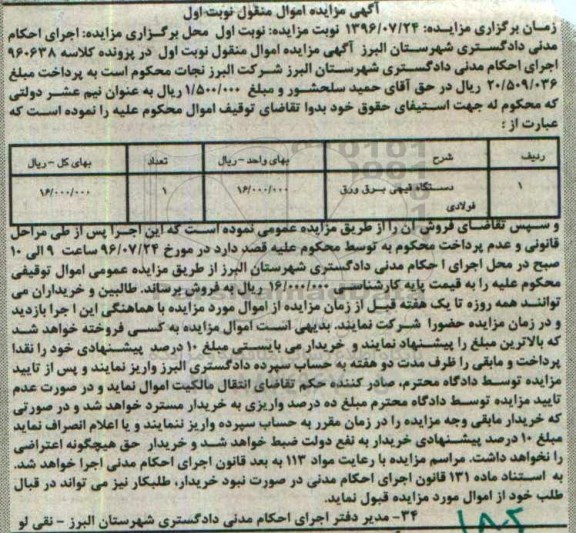 آگهی مزایده اموال منقول نوبت اول
زمان برگزاری مزایـده: ۱۳۹۶/۰۷/۲۴ نوبت مزایده: نوبت اول محل برگزاری مزایده: اجرای احکام
مدنی دادگستـری شهرستـان البرز آگهی مزایده اموال منقول نوبت اول در پرونده کلاسه ۹۶۰۶۳۸
اجرای احکام مدنی دادگستری شهرستان البرز شرکت البرز نجات محکوم است به پرداخت مبلغ
۲۰/۵۰۹/۰۳۶ ریال در حق آقای حمید سلحشـور و مبلغ ۱/۵۰۰/۰۰۰ ریال به عنوان نیم عشـر دولتی
که محکوم له جهت استیفای حقوق خود بدوا تقاضای توقیف اموال محکوم علیه را نموده است که
عبارت از :
ردیف شرح بهای واحد-ریال تعداد بهای کل-ریال
۱ دستگاه قیچی برق ورق ۱۶/۰۰۰/۰۰۰ ۱ ۱۶/۰۰۰/۰۰۰
فولادی
و سپس تقاضای فروش آن را از طریق مزایده عمومی نموده است که این اجرا پس از طی مراحل
قانونی و عدم پرداخت محکوم به توسط محکوم علیه قصد دارد در مورخ ۹۶/۰۷/۲۴ ساعت ۹ الی ۱۰
صبح در محل اجرای احکام مدنی دادگستری شهرستان البرز از طریق مزایده عمومی اموال توقیفی
محکوم علیه را به قیمت پایه کارشناسـی ۱۶/۰۰۰/۰۰۰ ریال به فروش برساند. طالبین و خریداران می
توانند همه روزه تا یک هفته قبل از زمان مزایده از اموال مورد مزایده با هماهنگی این اجرا بازدید
و در زمان مزایده حضورا شرکت نمایند. بدیهی است اموال مزایده به کسی فروخته خواهد شد
که بالاترین مبلغ را پیشنهاد نمایند و خریدار می بایستی مبلغ ۱۰ درصد پیشنهادی خود را نقدا
پرداخت و مابقی را ظرف مدت دو هفته به حساب سپرده دادگستری البرز واریز نمایند و پس از تایید
مزایده توسط دادگاه محترم، صادر کننده حکم تقاضای انتقال مالکیت اموال نماید و در صورت عدم
تایید مزایده توسط دادگاه محترم مبلغ ده درصد واریزی به خریدار مسترد خواهد شد و در صورتی
که خریدار مابقی وجه مزایده را در زمان مقرر به حساب سپرده واریز ننمایند و یا اعلام انصراف نماید
مبلغ ۱۰ درصد پیشنهادی خریدار به نفع دولت ضبط خواهد شد و خریدار حق هیچگونه اعتراضی
را نخواهد داشت. مراسم مزایده با رعایت مواد ۱۱۳ به بعد قانون اجرای احکام مدنی اجرا خواهد شد.
به استناد ماده ۱۳۱ قانون اجرای احکام مدنی در صورت نبود خریدار، طلبکار نیز می تواند در قبال
طلب خود از اموال مورد مزایده قبول نماید.
۳۴- مدیر دفتر اجرای احکام مدنی دادگستری شهرستان البرز - نقی لو